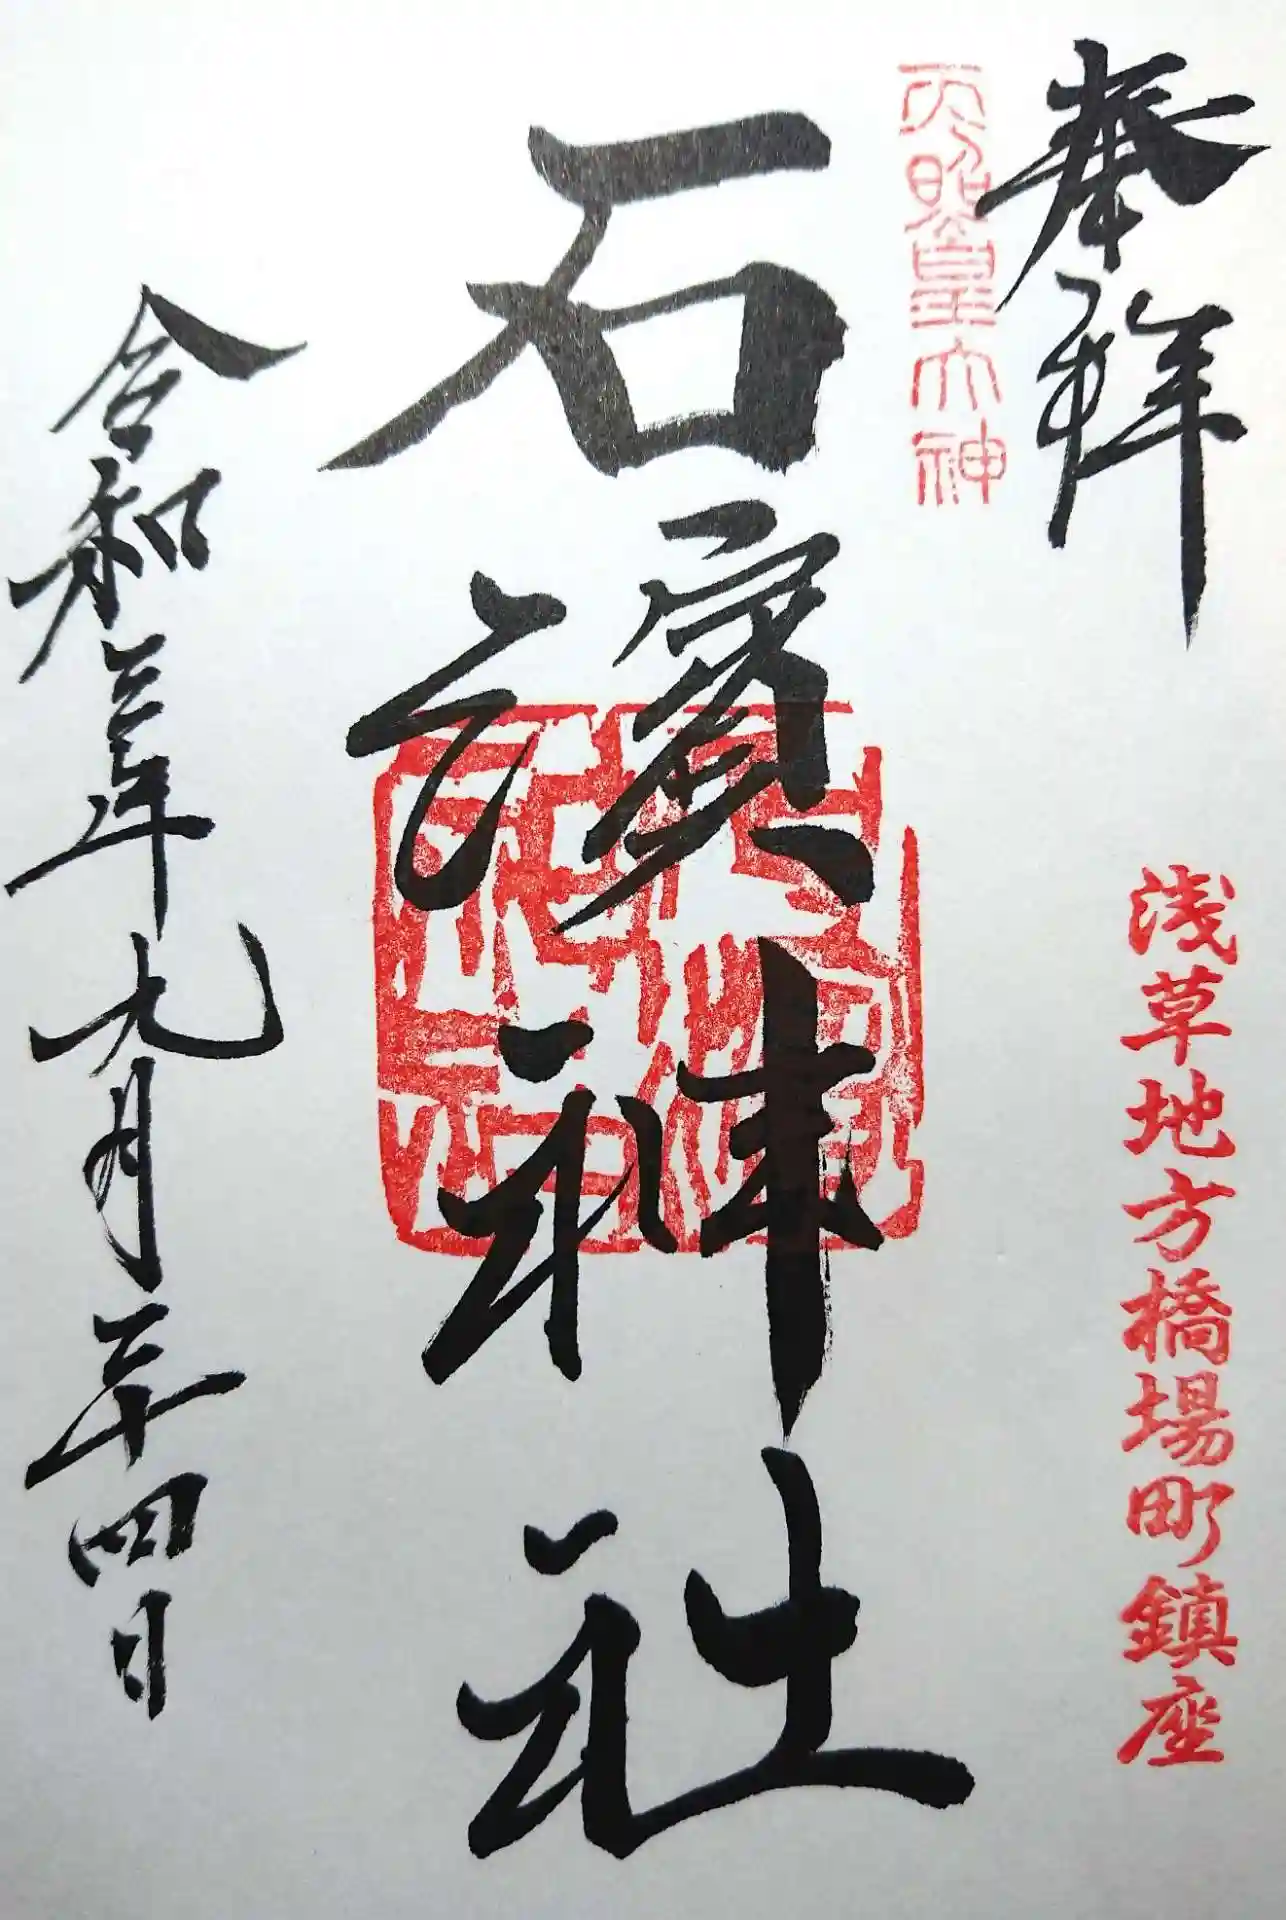 奉拝
天照皇大神
浅草地方橋場町鎮座
石濱神社
令和三年九月二十四日